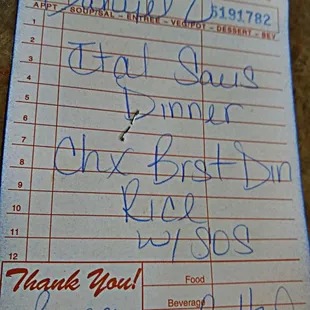 5191782
APPT - SOUP/SAL - ENTREE - VEG/POT - DESSERT - BEV
1
2
3 Ital Saus
4
5 Dinner
6
7 Chx Brst Din
8
9 Rice
10
11 W/SOS
12
Thank You!
Food
Beverage